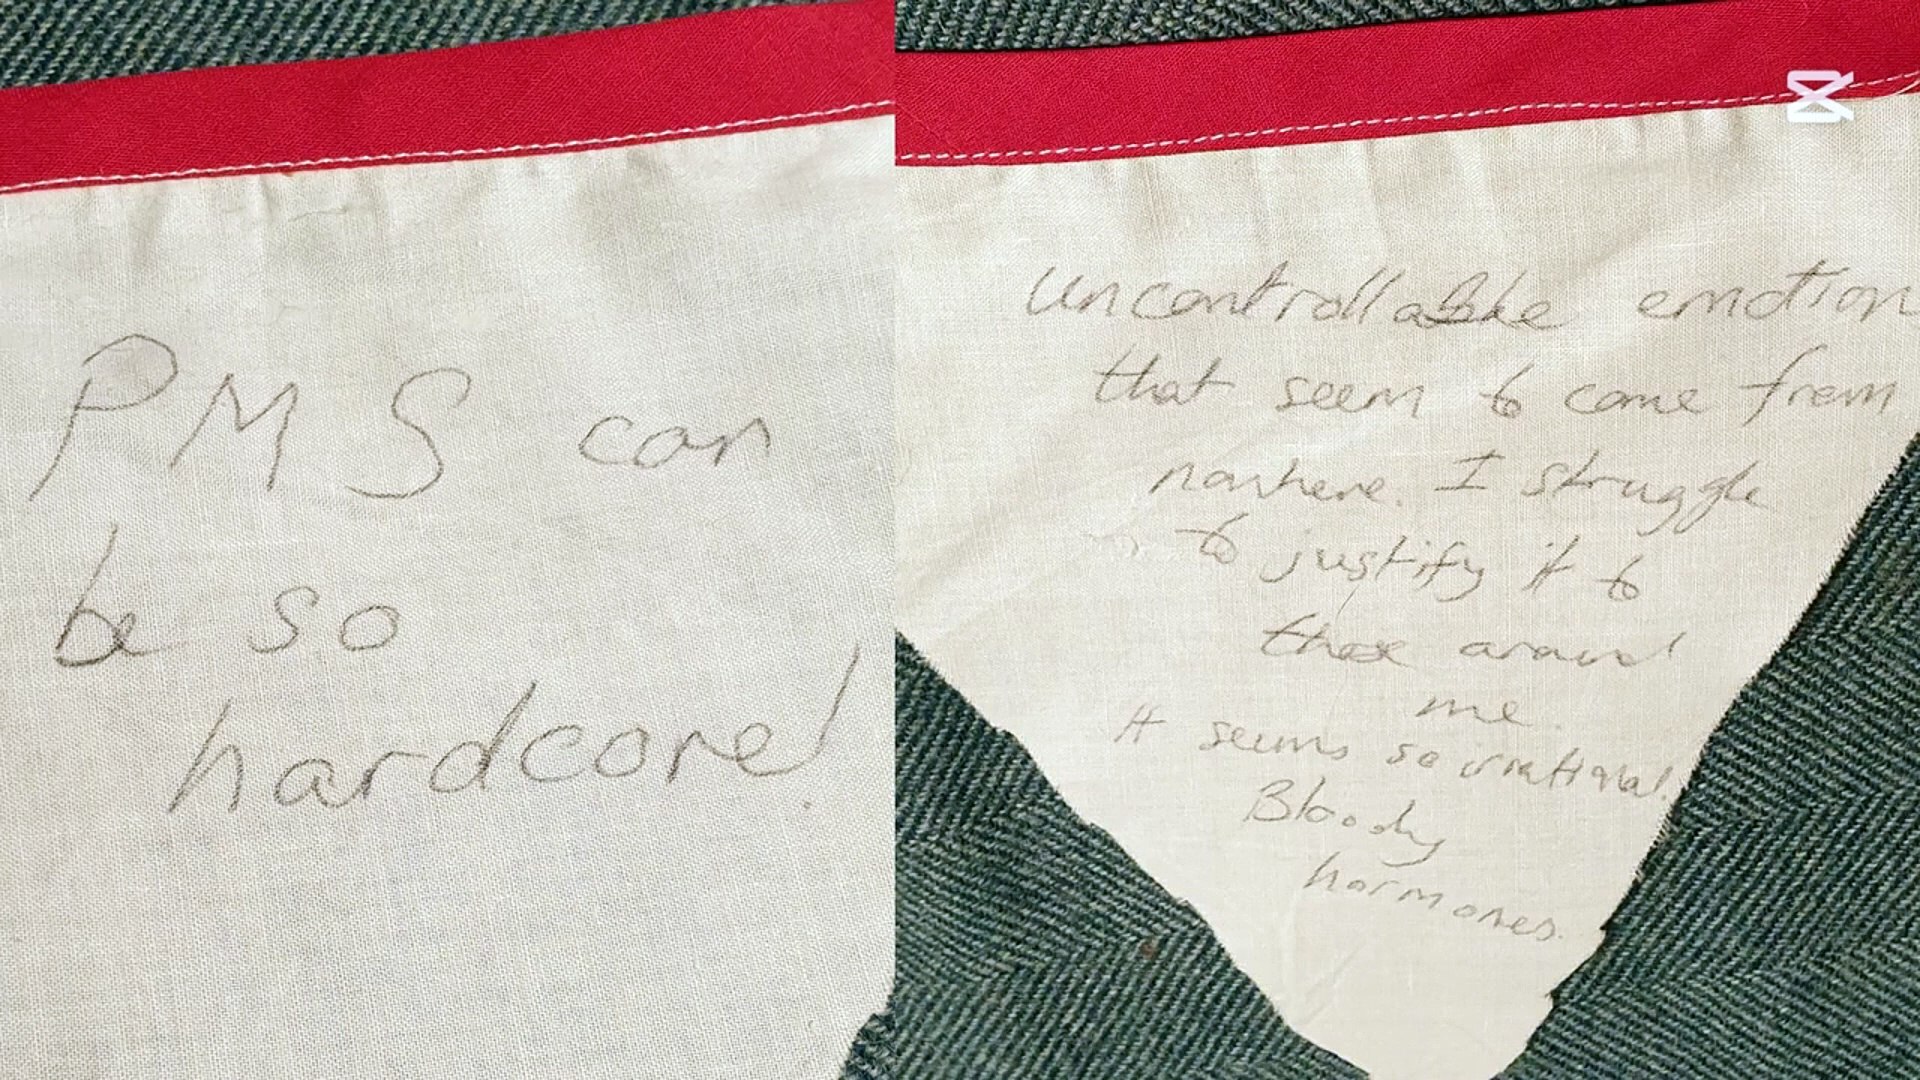 PMS can
be so
hardcore!
uncontrollable emotion
that seem to come from
nowhere. I struggle
to justify it to
those around
me.
It seems so irrational.
Bloody
hormones.